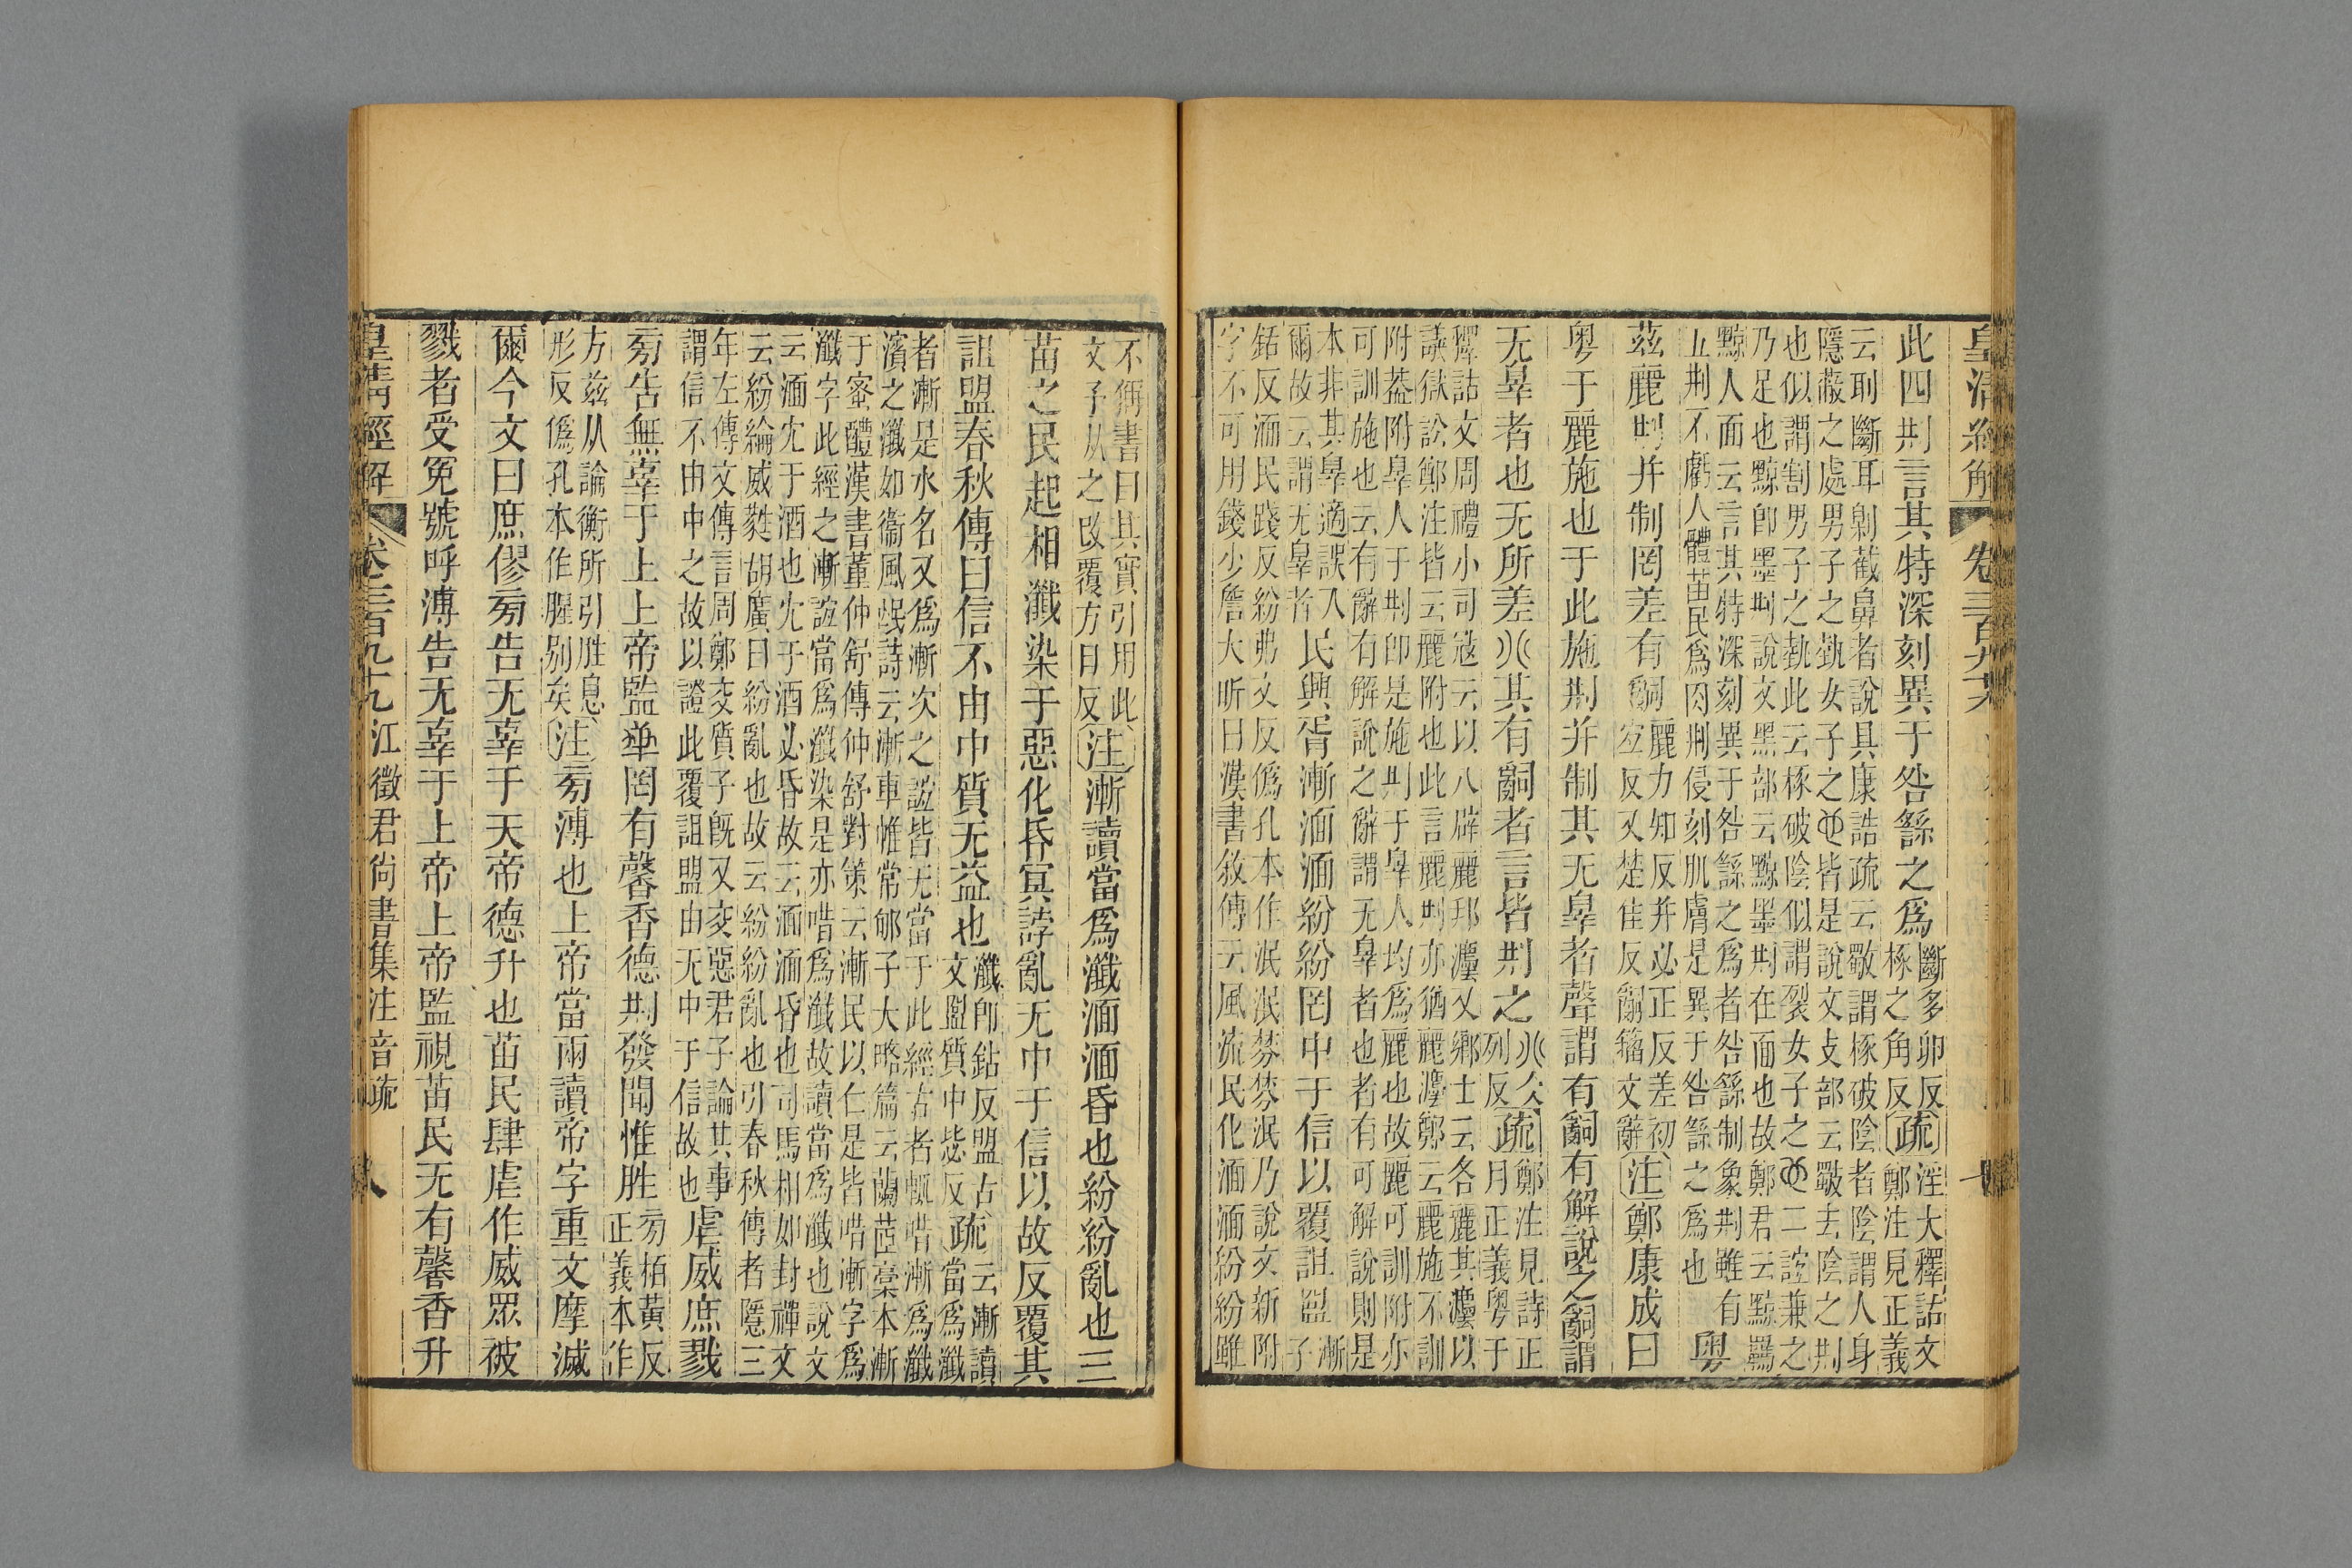 皇清經解 卷三百九十
此四𠛬言其特深刻異于咎繇之爲斷多卯反椓之角反疏淫大釋詁文鄭注見正義
云刵斷耳劓截鼻者說具康誥疏云斀謂椓破陰者陰謂人身
隱蔽之處男子之勢女子之也皆是說文攴部云斀去陰之𠛬
也似謂割男子之勢此云椓破陰似謂裂女子之二誼兼之
乃足也黥卽墨𠛬說文黑部云黥墨𠛬在面也故鄭君云黥羈
黥人面云言其特深刻異于咎繇之爲者咎繇制象𠛬雖有
五𠛬不虧人體苗民爲肉𠛬侵刻肌膚是異于咎繇之爲也粤
茲麗𠛬并制罔差有嗣麗力知反并必正反差初宐反又楚隹反嗣籀文辭注鄭康成曰
粤于麗施也于此施𠛬并制其无辠者聲謂有嗣有解說之嗣謂
无辠者也无所差𠔁其有嗣者言皆𠛬之𠔁列反疏鄭注見詩正月正義粤于
釋詁文周禮小司寇云以八辟麗邦灋又鄉士云各麗其灋以
議獄訟鄭注皆云麗附也此言麗𠛬亦猶麗灋鄭云麗施不訓
附葢附辠人于𠛬卽是施𠛬于辠人均爲麗也故麗可訓附亦
可訓施也云有辭有解說之辭謂无辠者也者有可解說則是
本非其辠適誤入爾故云謂无辠者民興胥漸湎湎紛紛罔中于信以覆詛盟漸子
銛反湎民踐反紛弗文反僞孔本作泯泯棼棼泯乃說文新附
字不可用錢少詹大昕曰漢書敘傳云風流民化湎湎紛紛雖
不偁書曰其實引用此文予从之改覆方目反注漸讀當爲瀸湎湎昏也紛紛亂也三
苗之民起相瀸染于惡化昏冥誖亂无中于信以故反覆其
詛盟春秋傳曰信不由中質无益也瀸卽鉆反盟古文盟質中恚反疏云漸讀當爲瀸
者漸是水名又爲漸次之誼皆无當于此經古者輒借漸爲瀸
濱之瀸如衞風氓詩云漸車帷常郇子大略篇云蘭茝稾本漸
于蜜醴漢書董仲舒傳仲舒對策云漸民以仁是皆借漸字爲
瀸字此經之漸誼當爲瀸染是亦借爲瀸故讀當爲瀸也說文
云湎沈于酒也沈于酒必昏故云湎湎昏也司馬相如封禪文
云紛綸威蕤胡廣曰紛亂也故云紛紛亂也引春秋傳者隱三
年左傳文傳言周鄭交質子旣又交惡君子論其事
謂信不由中之故以證此覆詛盟由无中于信故也虐威庶戮
㫄告無辠于上上帝監𠦒罔有馨香德𠛬發聞惟胜㫄栢黃反正義本作
方茲从論衡所引胜息形反僞孔本作腥別矣注㫄溥也上帝當兩讀帝字重文摩滅
爾今文曰庶僇㫄告无辠于天帝德升也苗民肆虐作威眾被
戮者受冤號呼溥告无辠于上帝上帝監視苗民无有馨香升
皇淸經解 卷三百九十九 江徵君尙書集注音疏 八